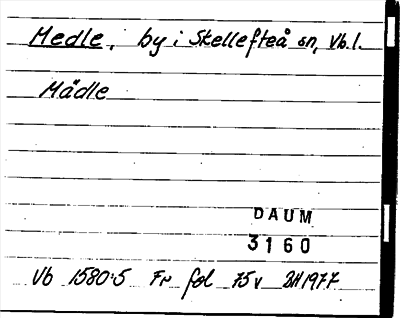 Medle, by i Skellefteå sn, Vb.l.
Mädle
DAUM
3160
Vb 1580:5 Fr fol 75v BH 1977